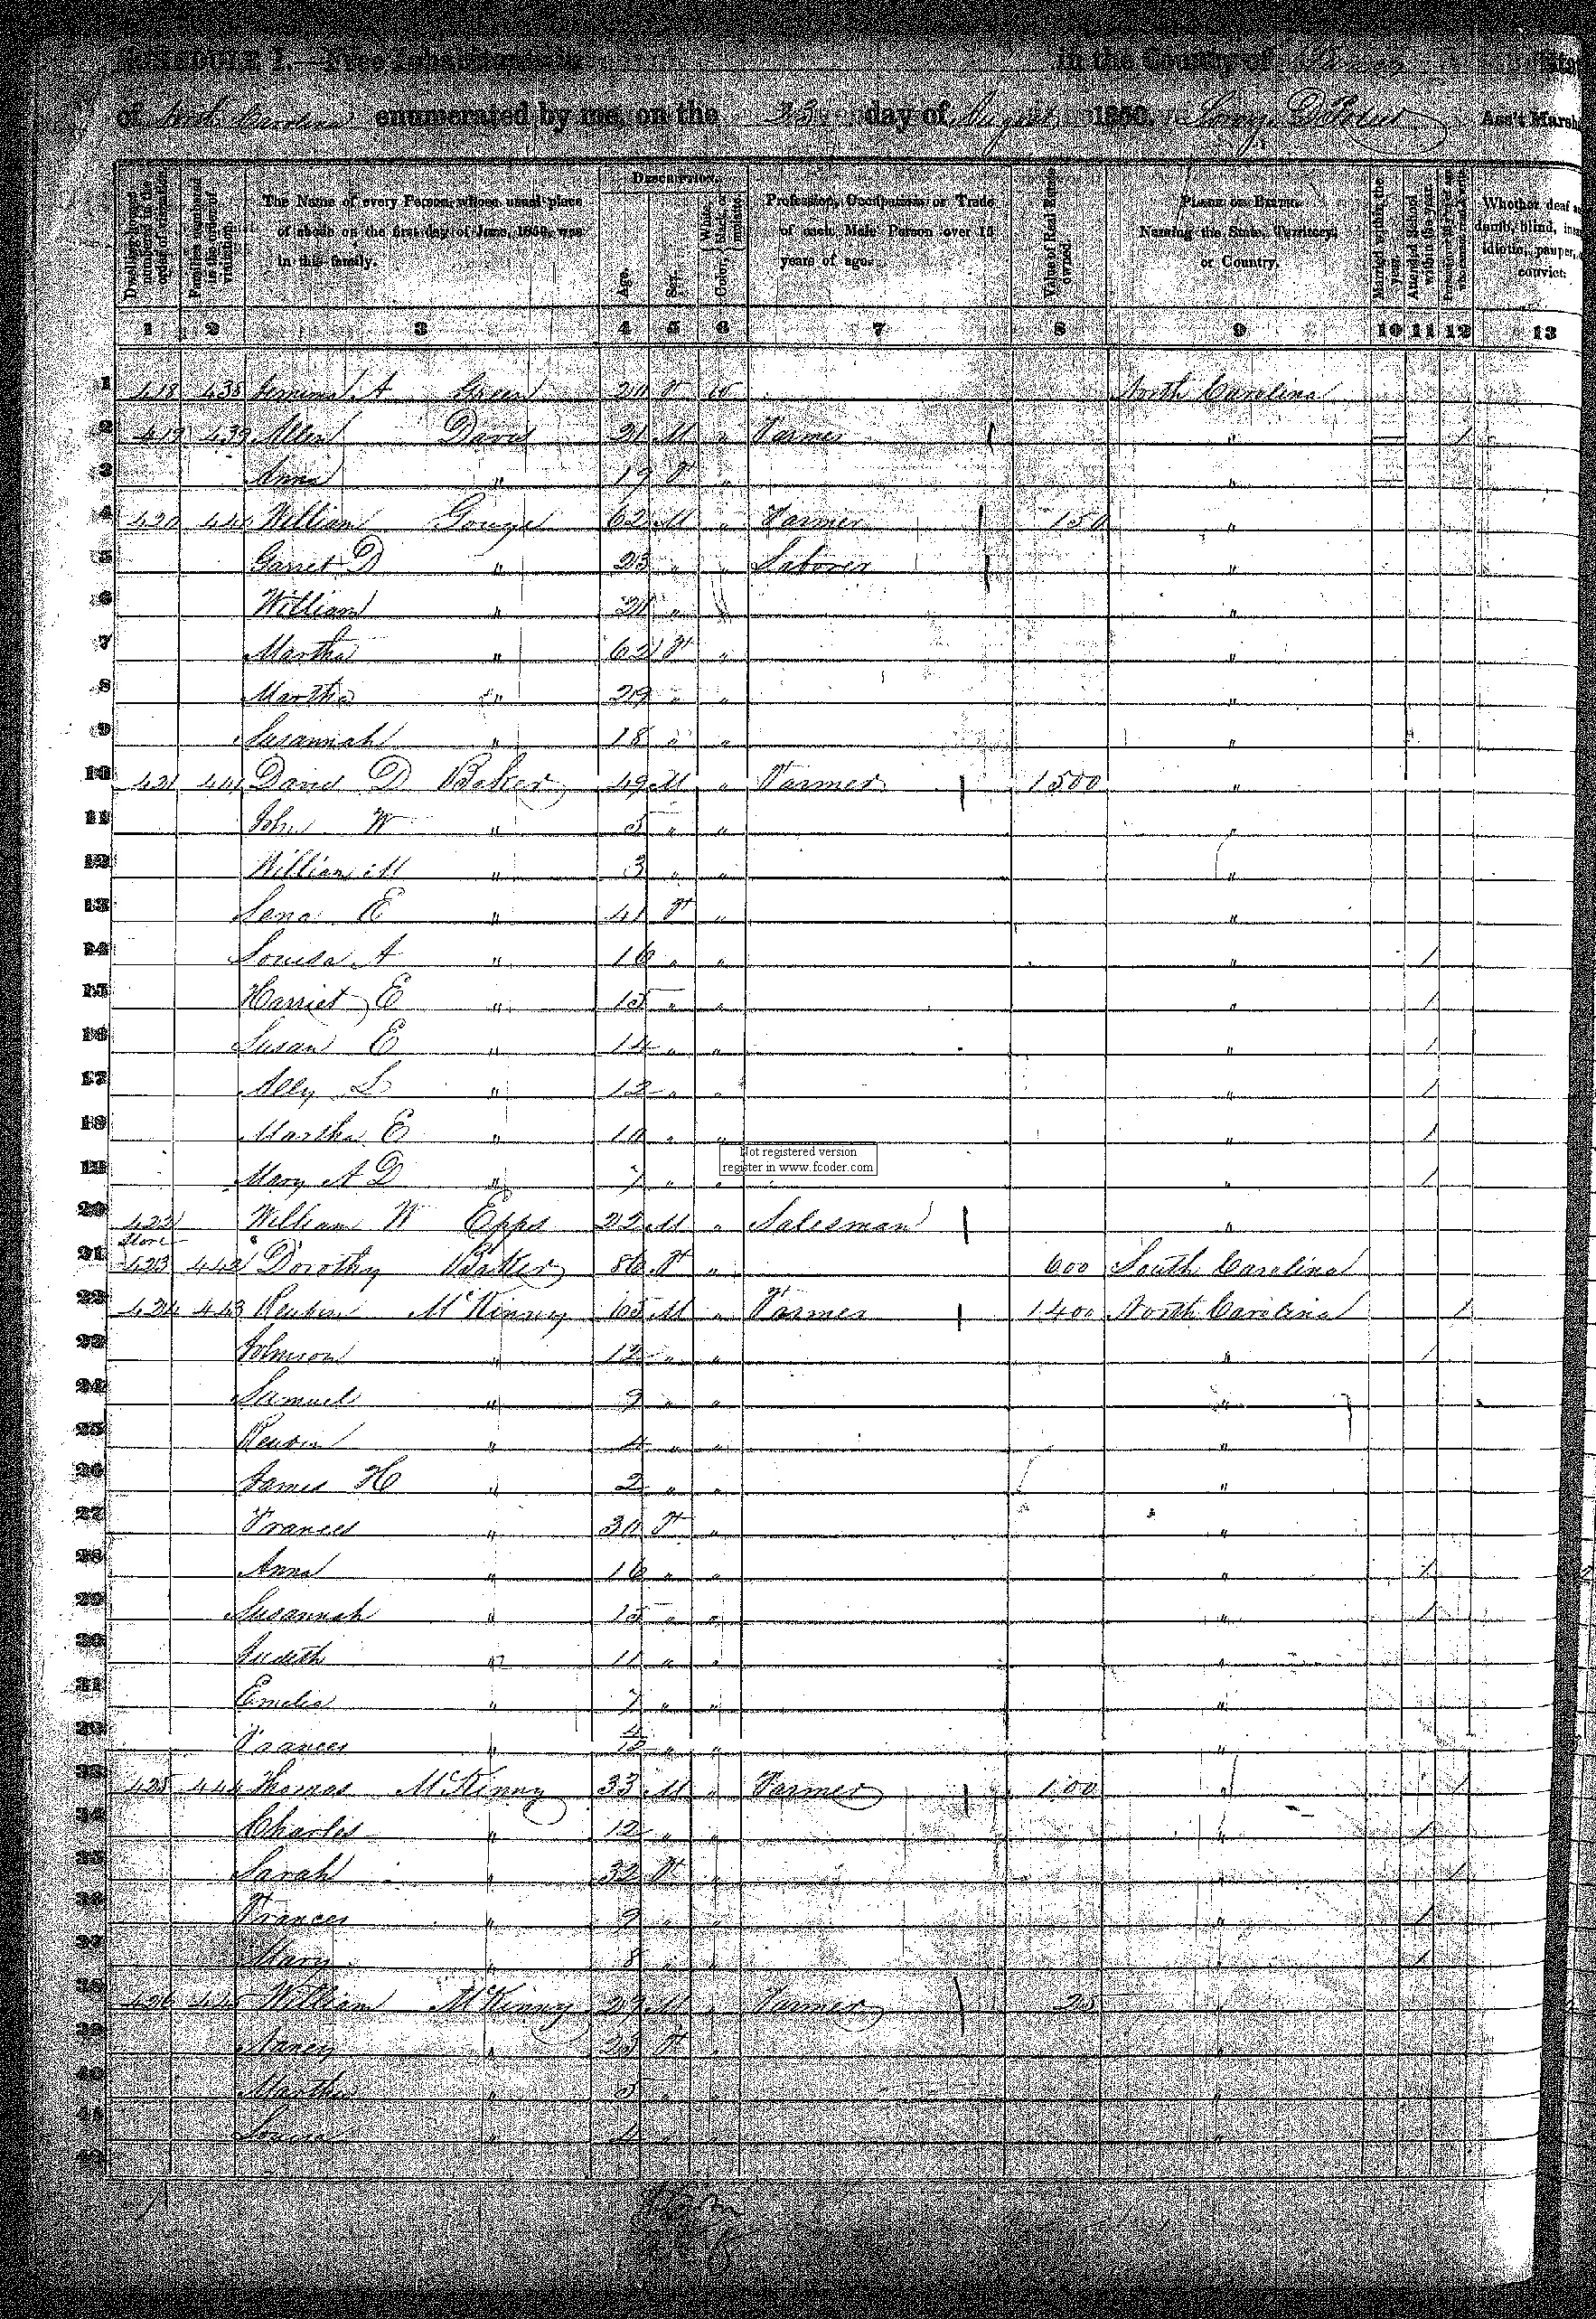 SCHEDULE I.—Free Inhabitants in in the County of State
of North Carolina enumerated by me, on the 23 day of August 1850. George D Ass't Marshal
Dwelling-houses numbered in the order of visitation.
Families numbered in the order of visitation.
The Name of every Person whose usual place of abode on the first day of June, 1850, was in this family.
Description.
Age.
Sex.
Color, White, black, or mulatto.
Profession, Occupation, or Trade of each Male Person over 15 years of age.
Value of Real Estate owned.
Place of Birth. Naming the State, Territory, or Country.
Married within the year.
Attended School within the year.
Whether deaf and dumb, blind, insane, idiotic, pauper, or convict.
1 2 3 4 5 6 7 8 9 10 11 12 13
1 418 438 A Green 20 F North Carolina
2 419 439 Allen David 21 M " Farmer " 1
3 Anna " 19 F " "
4 420 440 William Gouge 62 M " Farmer 150 "
5 Garret D " 23 " " Laborer "
6 William " 21 " "
7 Martha " 62 F " "
8 Martha " 29 " " "
9 Susannah " 18 " " "
10 421 441 David D Baker 49 M " Farmer 1500 "
11 John W " 5 " " "
12 William M " 3 " " "
13 Lena E " 41 F " "
14 Louisa A " 16 " " " 1
15 Harriet E " 15 " " " 1
16 Susan E " 14 " " " 1
17 Ally L " 12 " " " 1
18 Martha E " 10 " " " 1
Not registered version
register in www.fcoder.com
19 Mary A D " 7 " " 1
20 422 William W Epps 22 M " Salesman "
Store
21 423 442 Dorothy Baker 86 F " 600 South Carolina
22 424 443 Reuben McKinny 65 M " Farmer 1400 North Carolina 1
23 Johnson " 12 " " " 1
24 Samuel " 9 " " "
25 Reuben " 4 " " "
26 James H " 2 " " "
27 Frances " 30 F " "
28 Anna " 16 " " " 1
29 Susannah " 15 " " " 1
30 Judith " 11 " " "
31 Emelia " 7 " " "
32 Frances " 4/12 " " "
33 425 444 Thomas McKinny 33 M " Farmer 100 " 1
34 Charles " 12 " " " 1
35 Sarah " 32 F " " 1
36 Frances " 9 " " " 1
37 Mary " 8 " " " 1
38 426 445 William McKinny 29 M " Farmer 25 "
39 Nancy " 23 F " "
40 Martha " 5 " "
41 Louisa " 4 " "
42